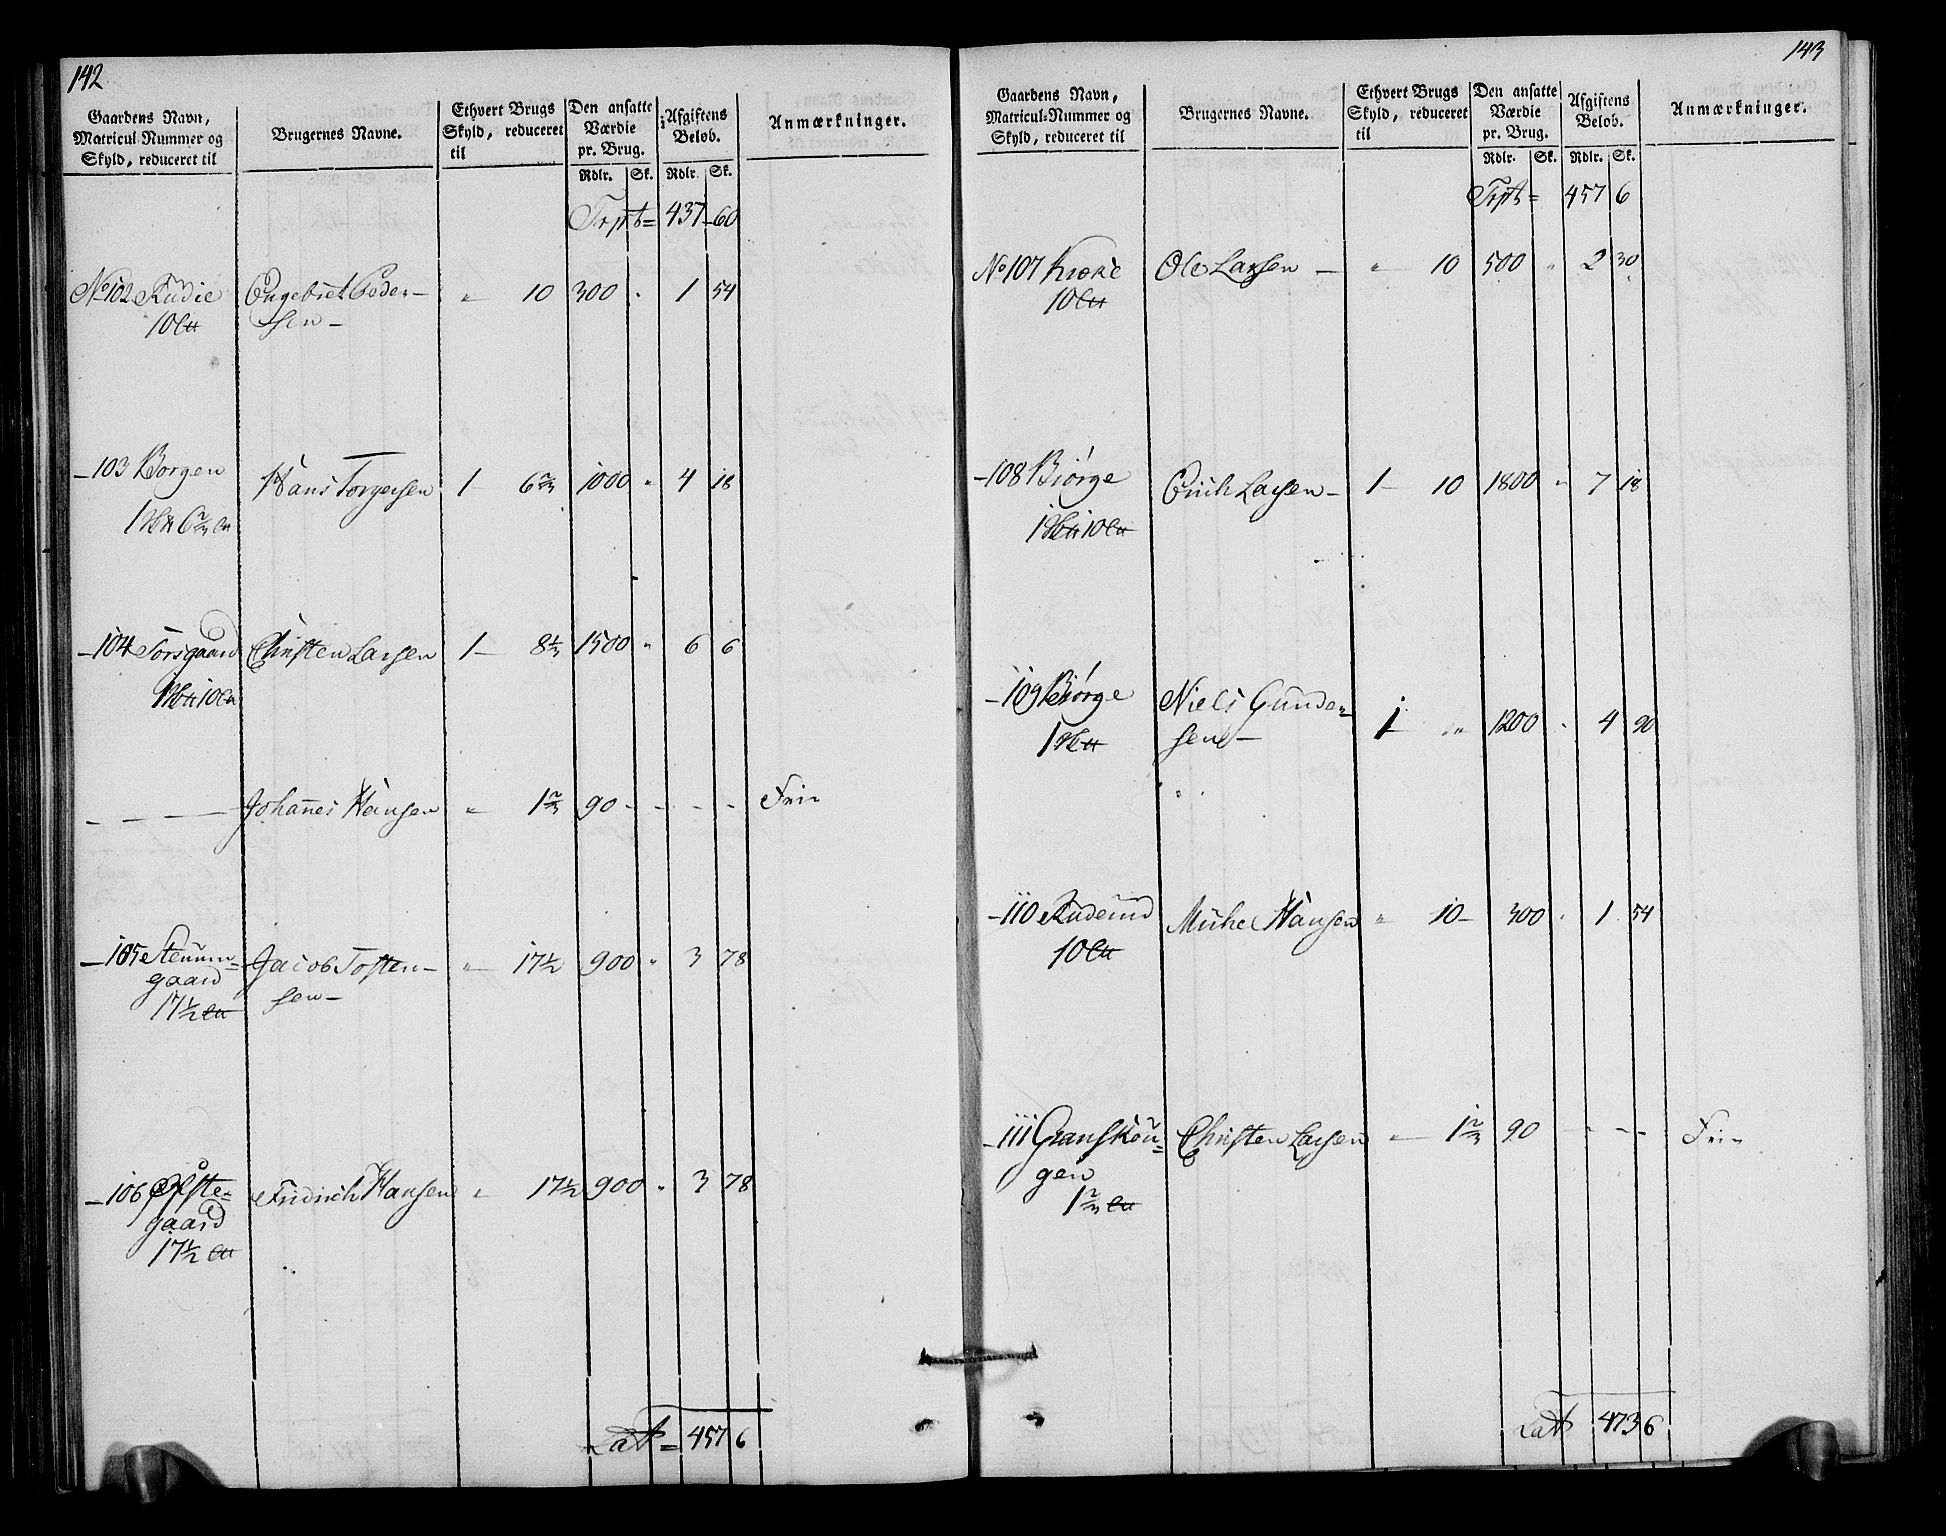 142
Gaardens Navn, Matricul-Nummer og Skyld, reduceret til | Brugernes Navne. | Ethvert Brugs Skyld, reduceret til | Den ansatte Værdie pr. Brug. Rdlr. Sk. | Afgiftens Beløb. Rdlr. Sk. | Anmærkninger.
Trpt= 437 60
No 102 Rudie Engebret Peder- " 10 300 " 1 54
10 sen -
- 103 Borgen Hans Torgersen 1 - 6 2/3 1000 " 4 18
1 6 2/3
- 104 Torsgaard Christen Larsen 1 - 8 1/3 1500 " 6 6
1 10
- - - Johannes Hansen " 1 2/3 90 - - - - Frie
- 105 Stenum= Jacob Tosten- " 17 1/2 900 " 3 78
gaard sen -
17 1/2
- 106 Øfste- Fridrich Hansen " 17 1/2 900 " 3 78
gaard
17 1/2
Lat = 457 6
143
Gaardens Navn, Matricul-Nummer og Skyld, reduceret til | Brugernes Navne. | Ethvert Brugs Skyld, reduceret til | Den ansatte Værdie pr. Brug. Rdlr. Sk. | Afgiftens Beløb. Rdlr. Sk. | Anmærkninger.
Trpt= 457 6
No 107 Kroke Ole Larsen - " 10 500 " 2 30
10
- 108 Biørge Erich Larsen - 1 - 10 1800 " 7 18
1 10
- 109 Biørge Niels Gunder= 1 " 1200 " 4 90
1 sen -
- 110 Ruderud Michel Hansen " 10 - 300 " 1 54
10
- 111 Granskou= Christen Larsen " 1 2/3 90 - - - Frie
gen
1 2/3
Lat 473 6